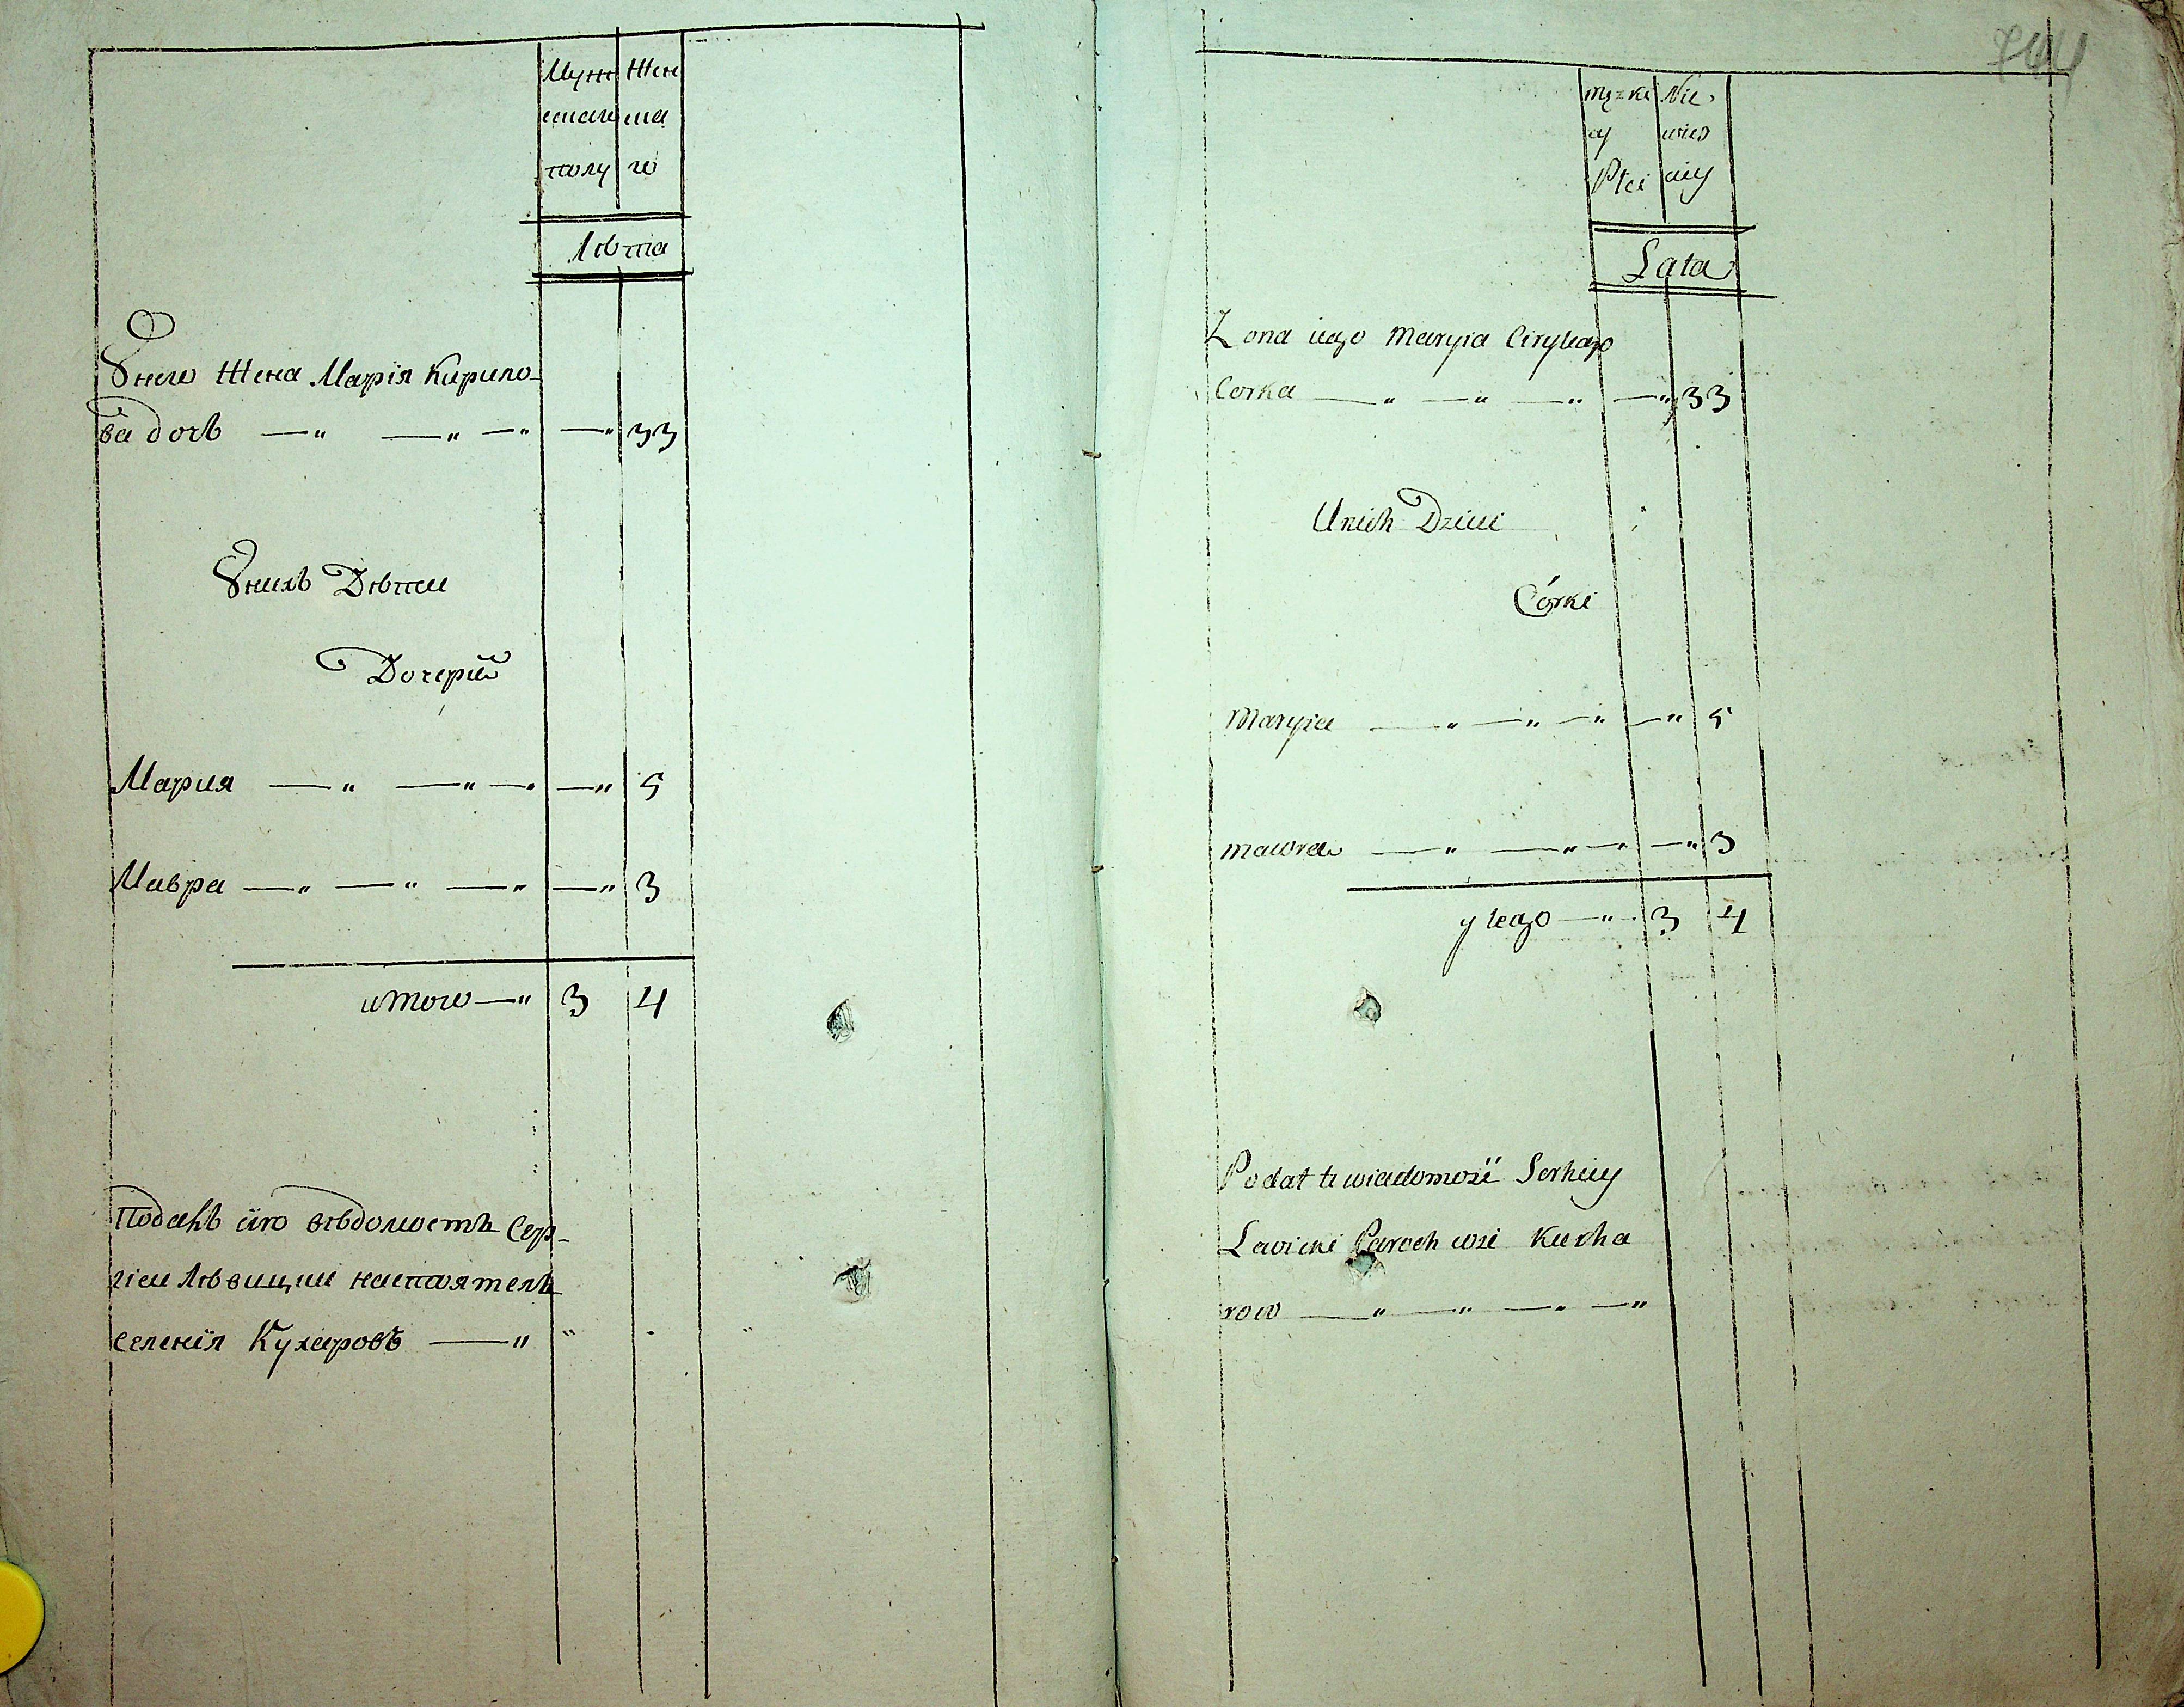 Муж Жен
ескаго ска
полу го
Лѣта
Ѹнего Жена Марія Кирило-
ва дочь —„ —„ —„ —„ 33
Ѹнихъ Дѣтеи
Дочерїй
Мария —„ —„ —„ —„ 5
Мавра —„ —„ —„ —„ 3
итого —„ 3 4
Подалъ сїю вѣдомость Сер-
гіеи Лѣвицъии настоятель
селенїя Кухаровъ —„
744
męzki Nie,
ey wies
Płci ciey
Lata
Zona iego Maryia Cirylego
Corka —„ —„ —„ —„ 33
Unich Dzieci
Córki
Maryia —„ —„ —„ —„ 5
Mawra —„ —„ —„ —„ 3
ytego —„ 3 4
Podał tę wiadomość Serhiey
Lewicki Paroch wsi Kucha
row —„ —„ —„ —„